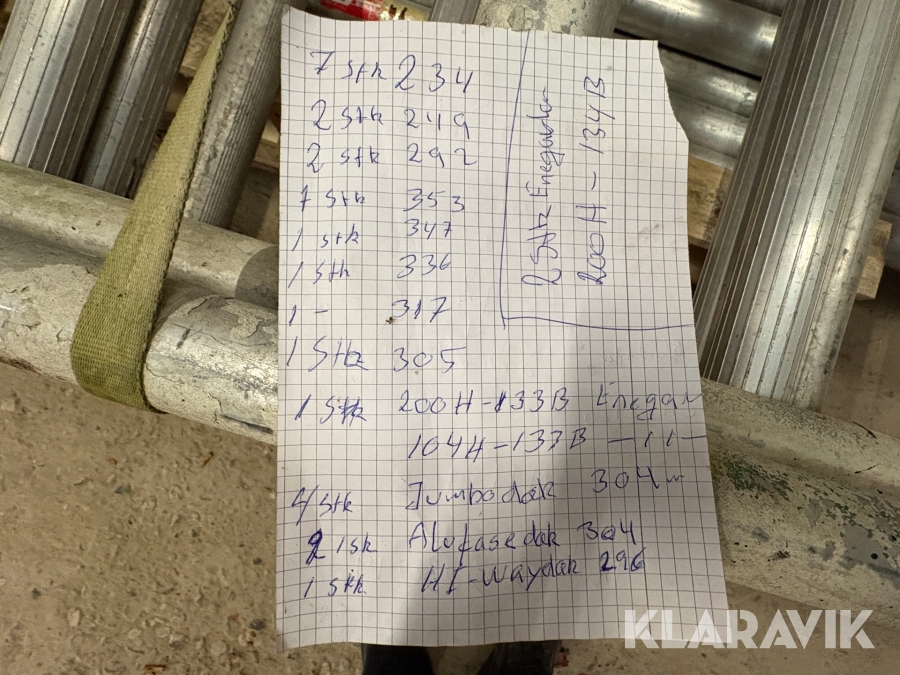 7 stk 234
2 stk 249
2 stk 292
7 stk 353
1 stk 347
1 stk 336
1 - 317
1 stk 305
1 stk 200H-133B Enegav
104H-133B -11-
4 stk Jumbodak 304
2 stk Alufasedak 304
1 stk HI-waydak 296
2 Stk
200H-134B
KLARAVIK